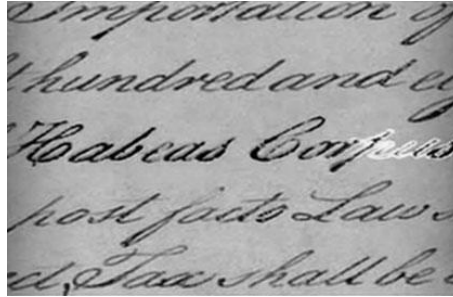 Importation of
hundred and ei
Habeas Corpus
post facto Laws
ed, Tax shall be